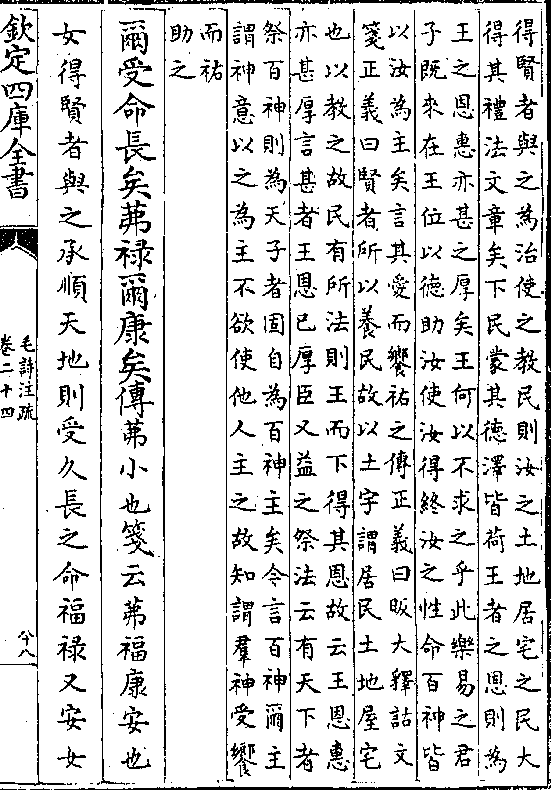 得賢者與之為治使之教民則汝之土地居宅之民大
得其禮法文章矣下民蒙其德澤皆荷王者之恩則為
王之恩惠亦甚之厚矣王何以不求之乎此樂易之君
子既來在王位以德助汝使汝得終汝之性命百神皆
以汝為主矣言其愛而饗祐之傳正義曰昄大釋詁文
箋正義曰賢者所以養民故以土字謂居民土地屋宅
也以教之故民有所法則王而下得其恩故云王恩惠
亦甚厚言甚者王恩已厚臣又益之祭法云有天下者
祭百神則為天子者固自為百神主矣令言百神爾主
謂神意以之為主不欲使他人主之故知謂羣神受饗
而祐
助之
爾受命長矣茀禄爾康矣傳茀小也箋云茀福康安也
女得賢者與之承順天地則受久長之命福禄又安女
欽定四庫全書
毛詩注疏
卷二十四